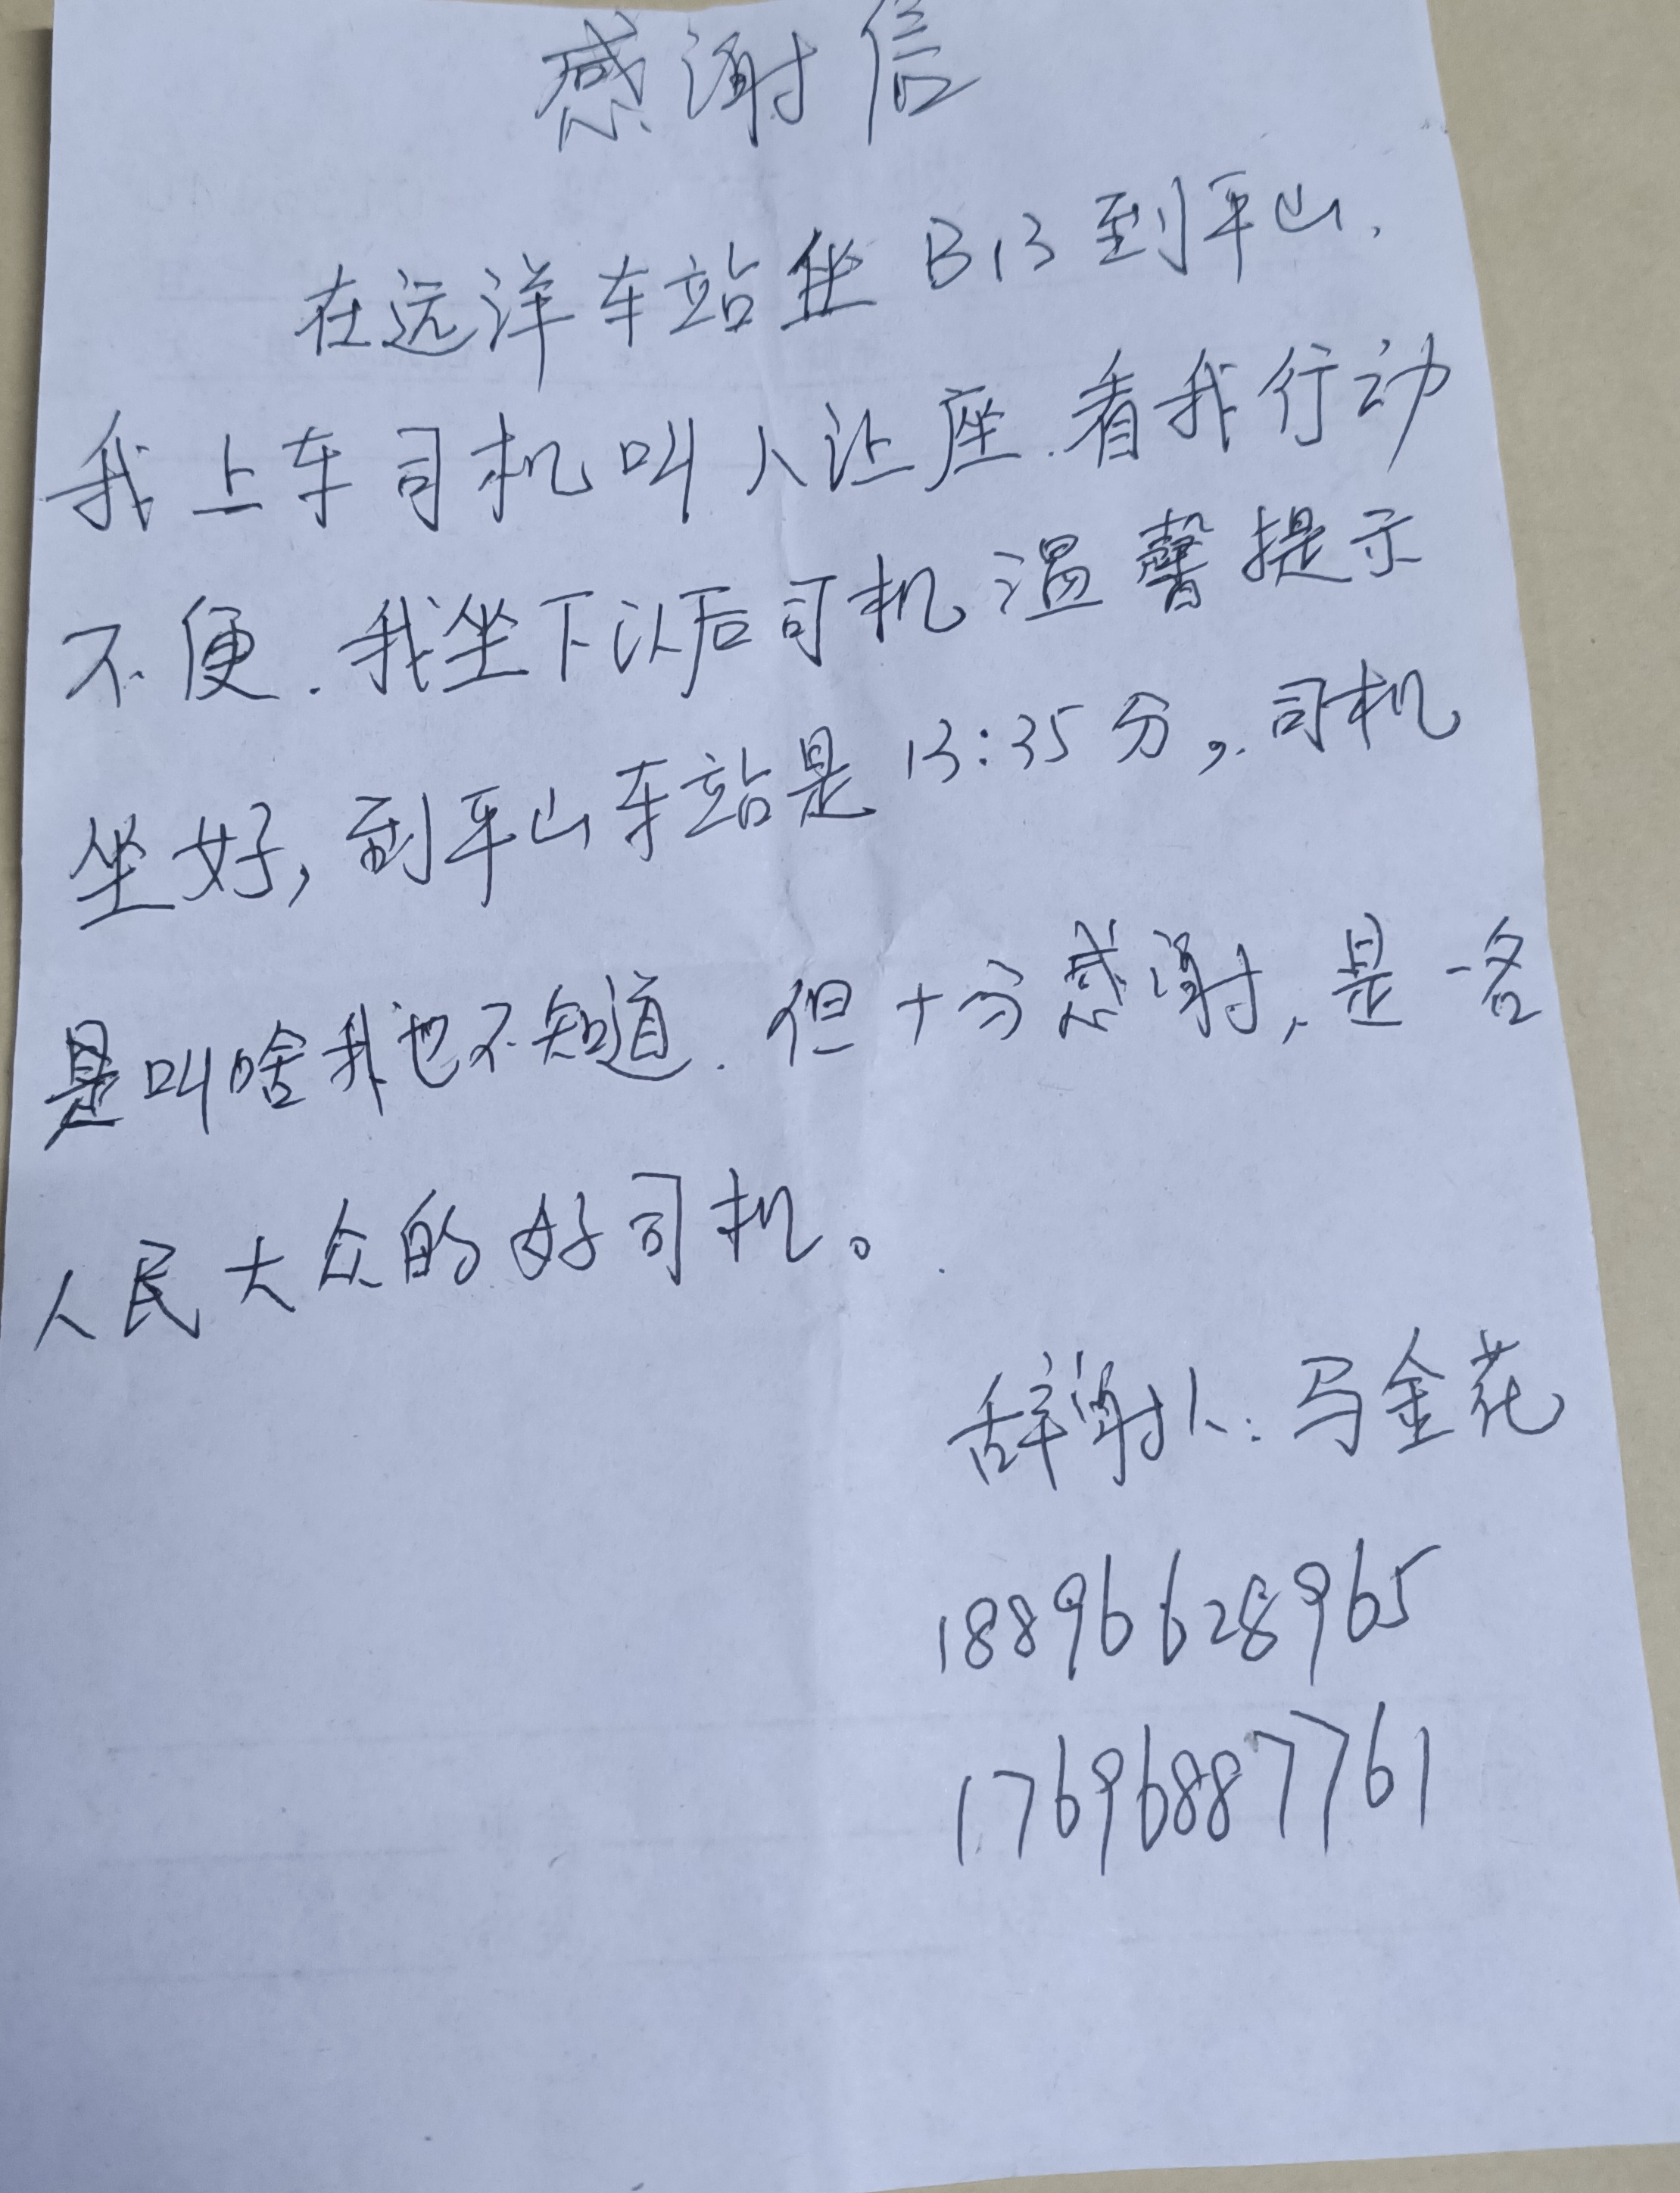 感谢信
在远洋车站坐B13到平山.
我上车司机叫人让座.看我行动
不便.我坐下以后司机温馨提示
坐好,到平山车站是13:35分,.司机
是叫啥我也不知道.但十分感谢,是一名
人民大众的好司机。
辞谢人:马金花
18896628965
17696887761